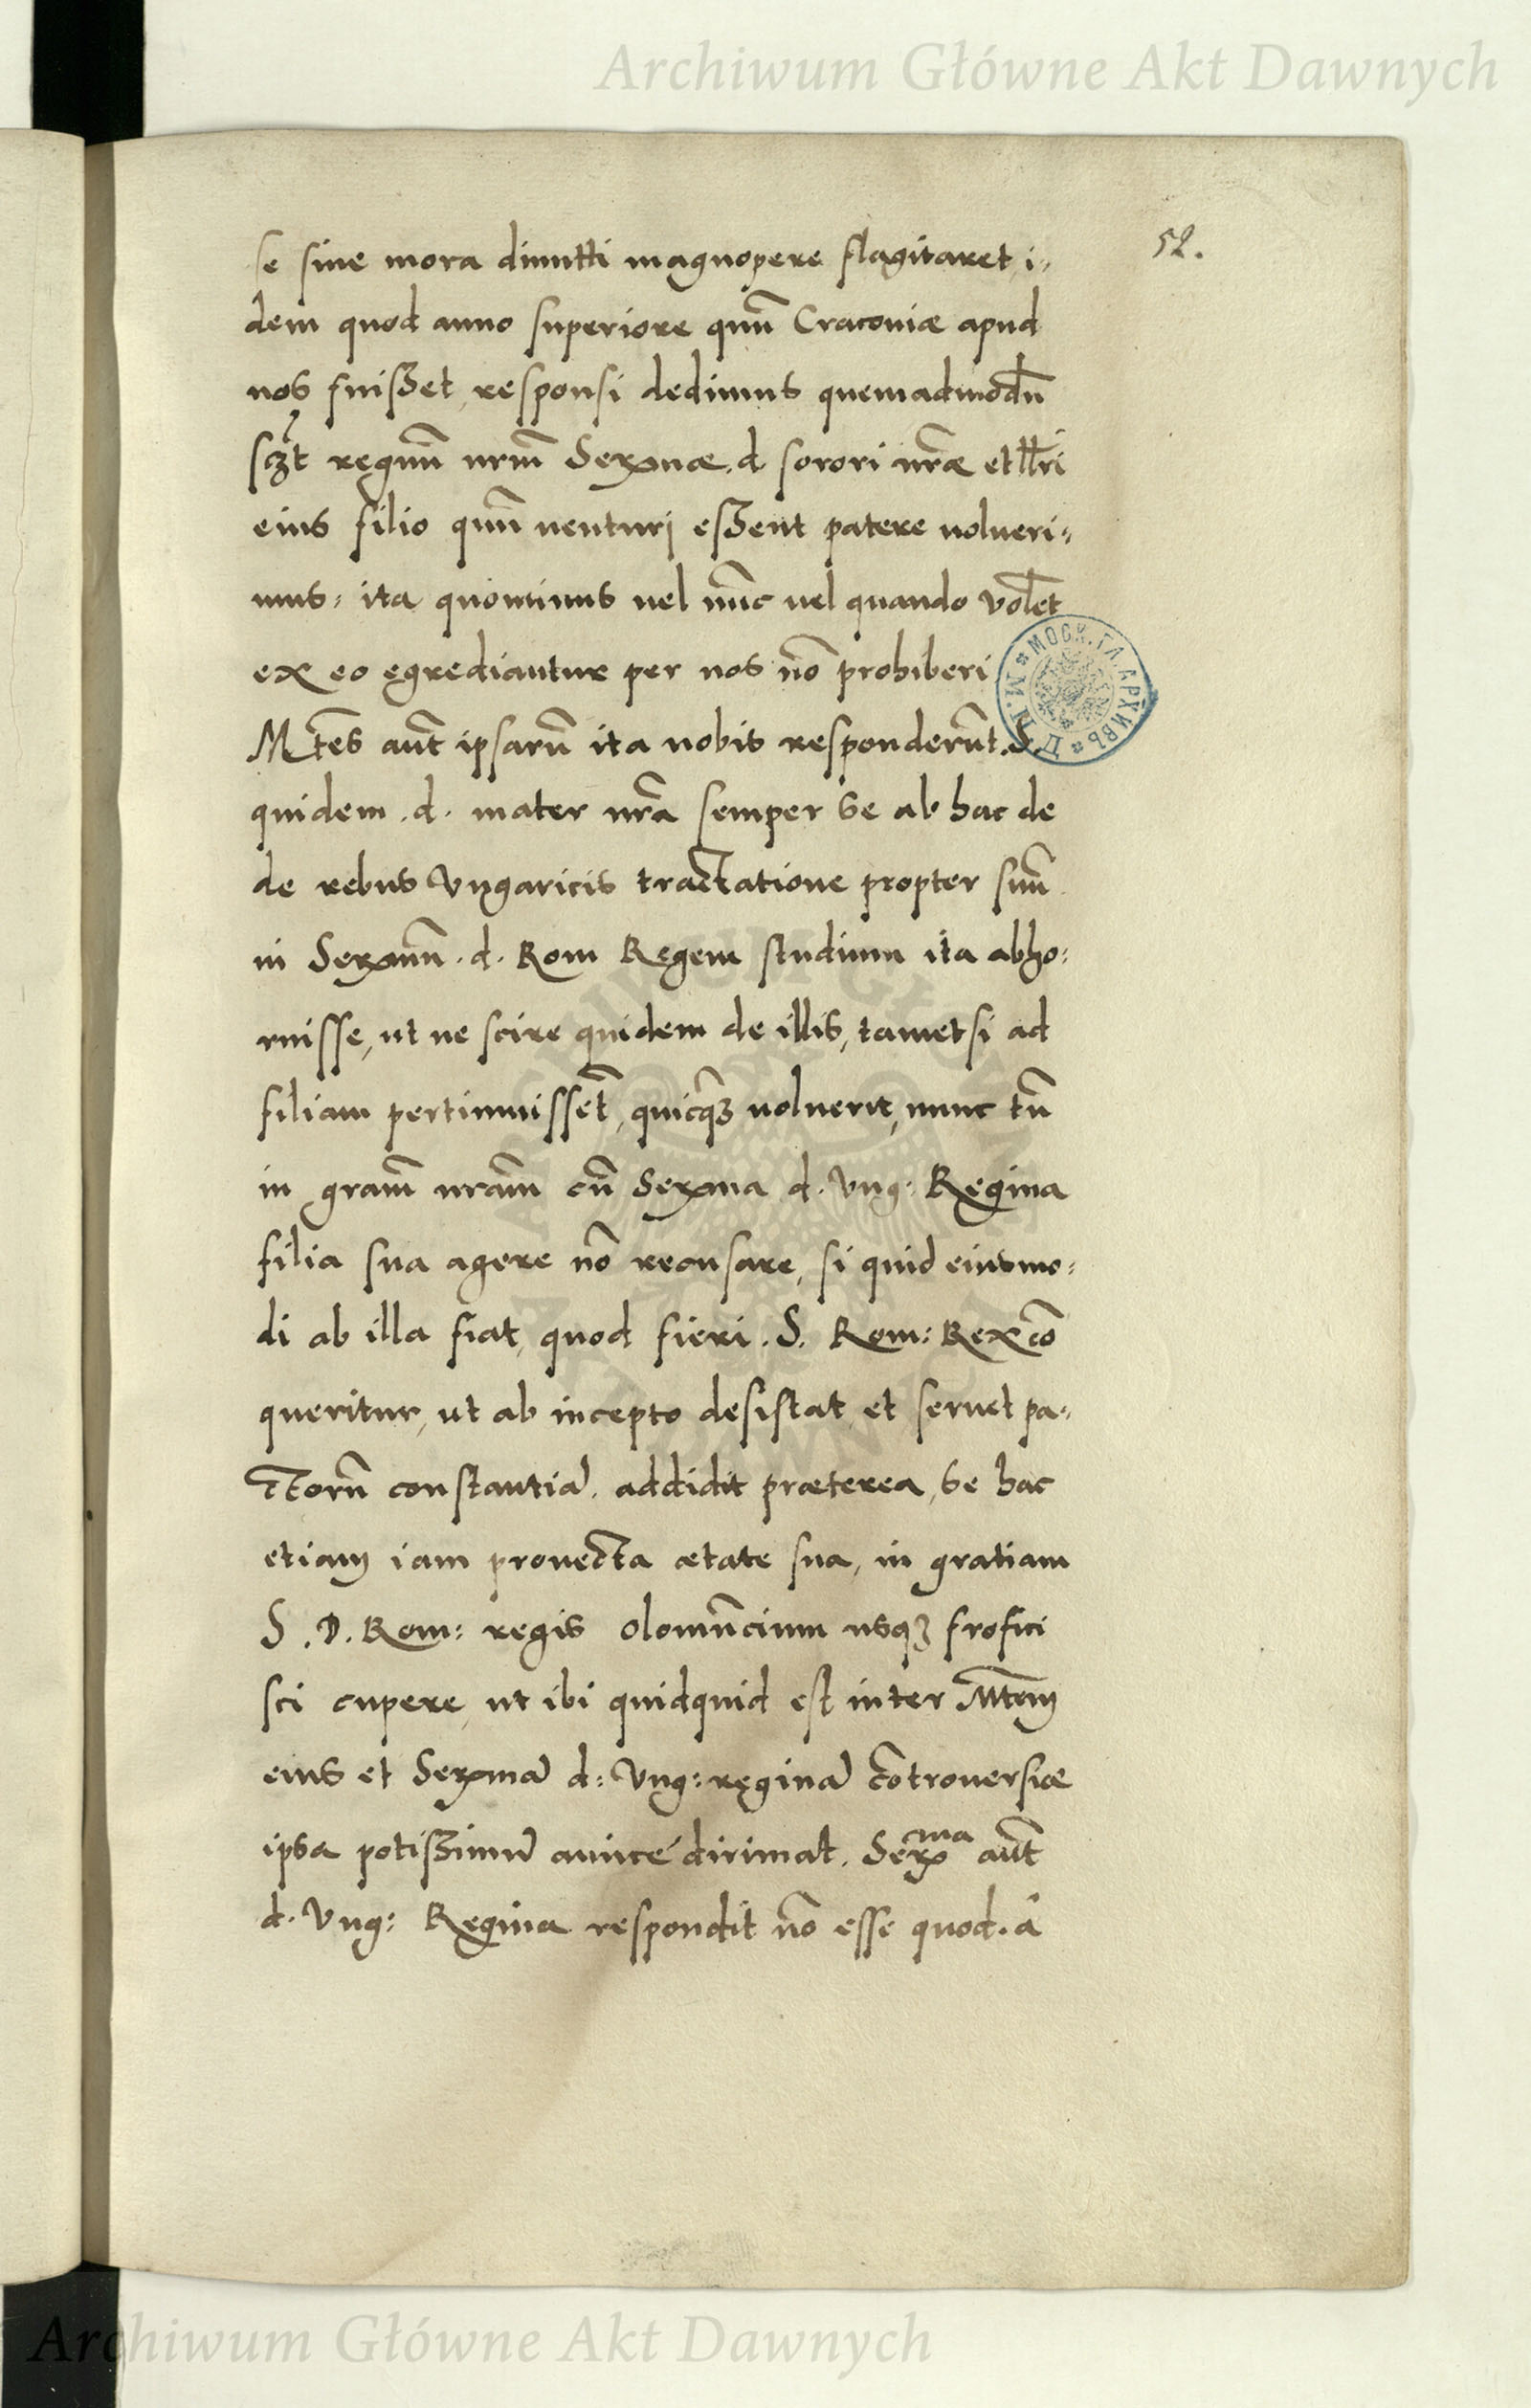 Archiwum Główne Akt Dawnych
52.
se sine mora dimitti magnopere flagitaret, i-
dem quod anno superiore quū Cracoviæ apud
nos fuisset, responsi dedimus quemadmodū
regnū nrm̄ Serxmæ. d. sorori nr̄æ et Illr̄i
eius filio quū venturi essent patere volueri-
mus: ita quominus vel nūc vel quando volēt
ex eo egrediantur per nos nō prohiberi
Mtēs aūt ipsarū ita nobis responderūt. S.
quidem . d. mater nr̄a semper se ab hac de
de rebus Vngaricis tractatione propter suū
in Serxmū . d. Rom Regem studium ita abho-
ruisse, ut ne scire quidem de illis, tametsi ad
filiam pertinuissēt, quicq̄ȝ voluerit, nunc tn̄
in gram̄ nram̄ cū Serxma d. Vng: Regina
filia sua agere nō recusare, si quid eiusmo-
di ab illa fiat, quod fieri . S. Rom: Rex cō
queritur, ut ab incepto desistat, et servet pa-
ctorū constantiā. addidit præterea, se hac
etiam iam provecta ætate sua, in gratiam
S. D. Rom: regis Olomūcium usqȝ frofici
sci cupere, ut ibi quidquid est inter Mtēm
eius et Serxmā d: Vng: reginā cōtroversiæ
ipsa potissimū amicé dirimat. Serxma aūt
d. Vng: Regina respondit nō esse quod. â
МОСК. ГЛ. АРХИВЪ М. И. Д.
Archiwum Główne Akt Dawnych